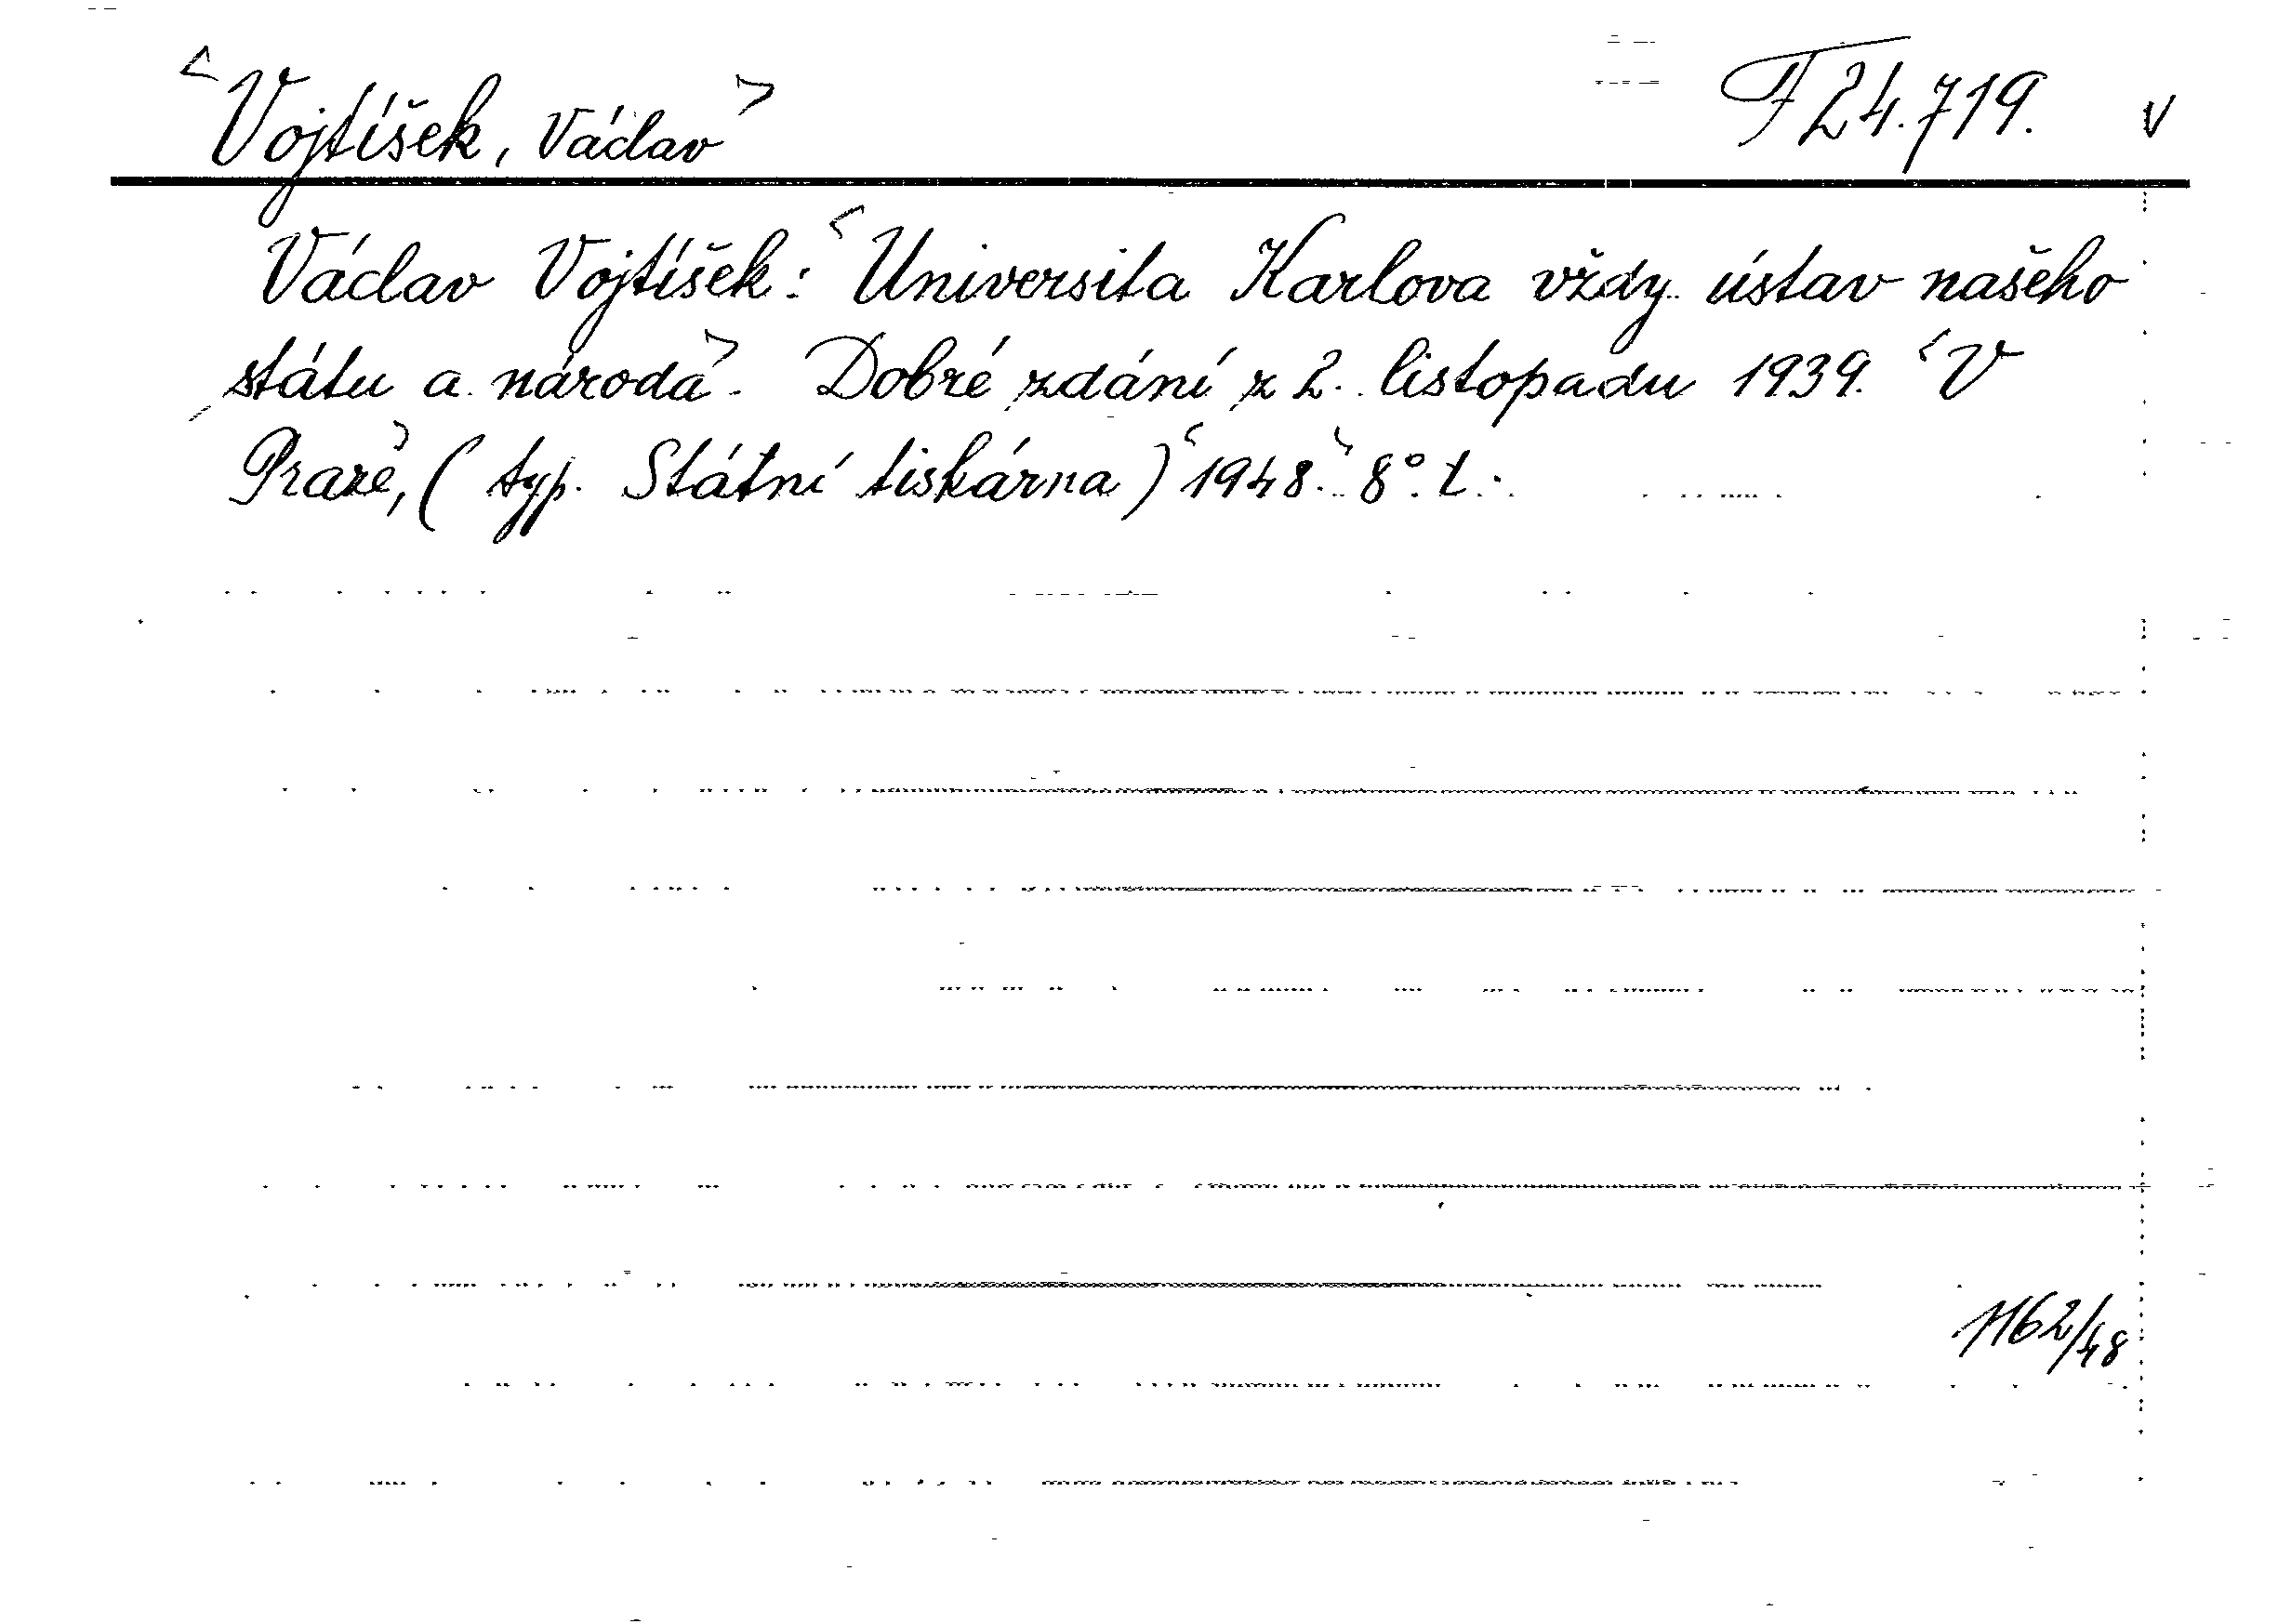 <Vojtíšek, Václav> F 24.719. V
Václav Vojtíšek: <Universita Karlova vždy ústav našeho
státu a národa>. Dobré zdání z 2. listopadu 1939. <V
Praze,> (typ. Státní tiskárna) <1948.> 8°. t.
1162/48